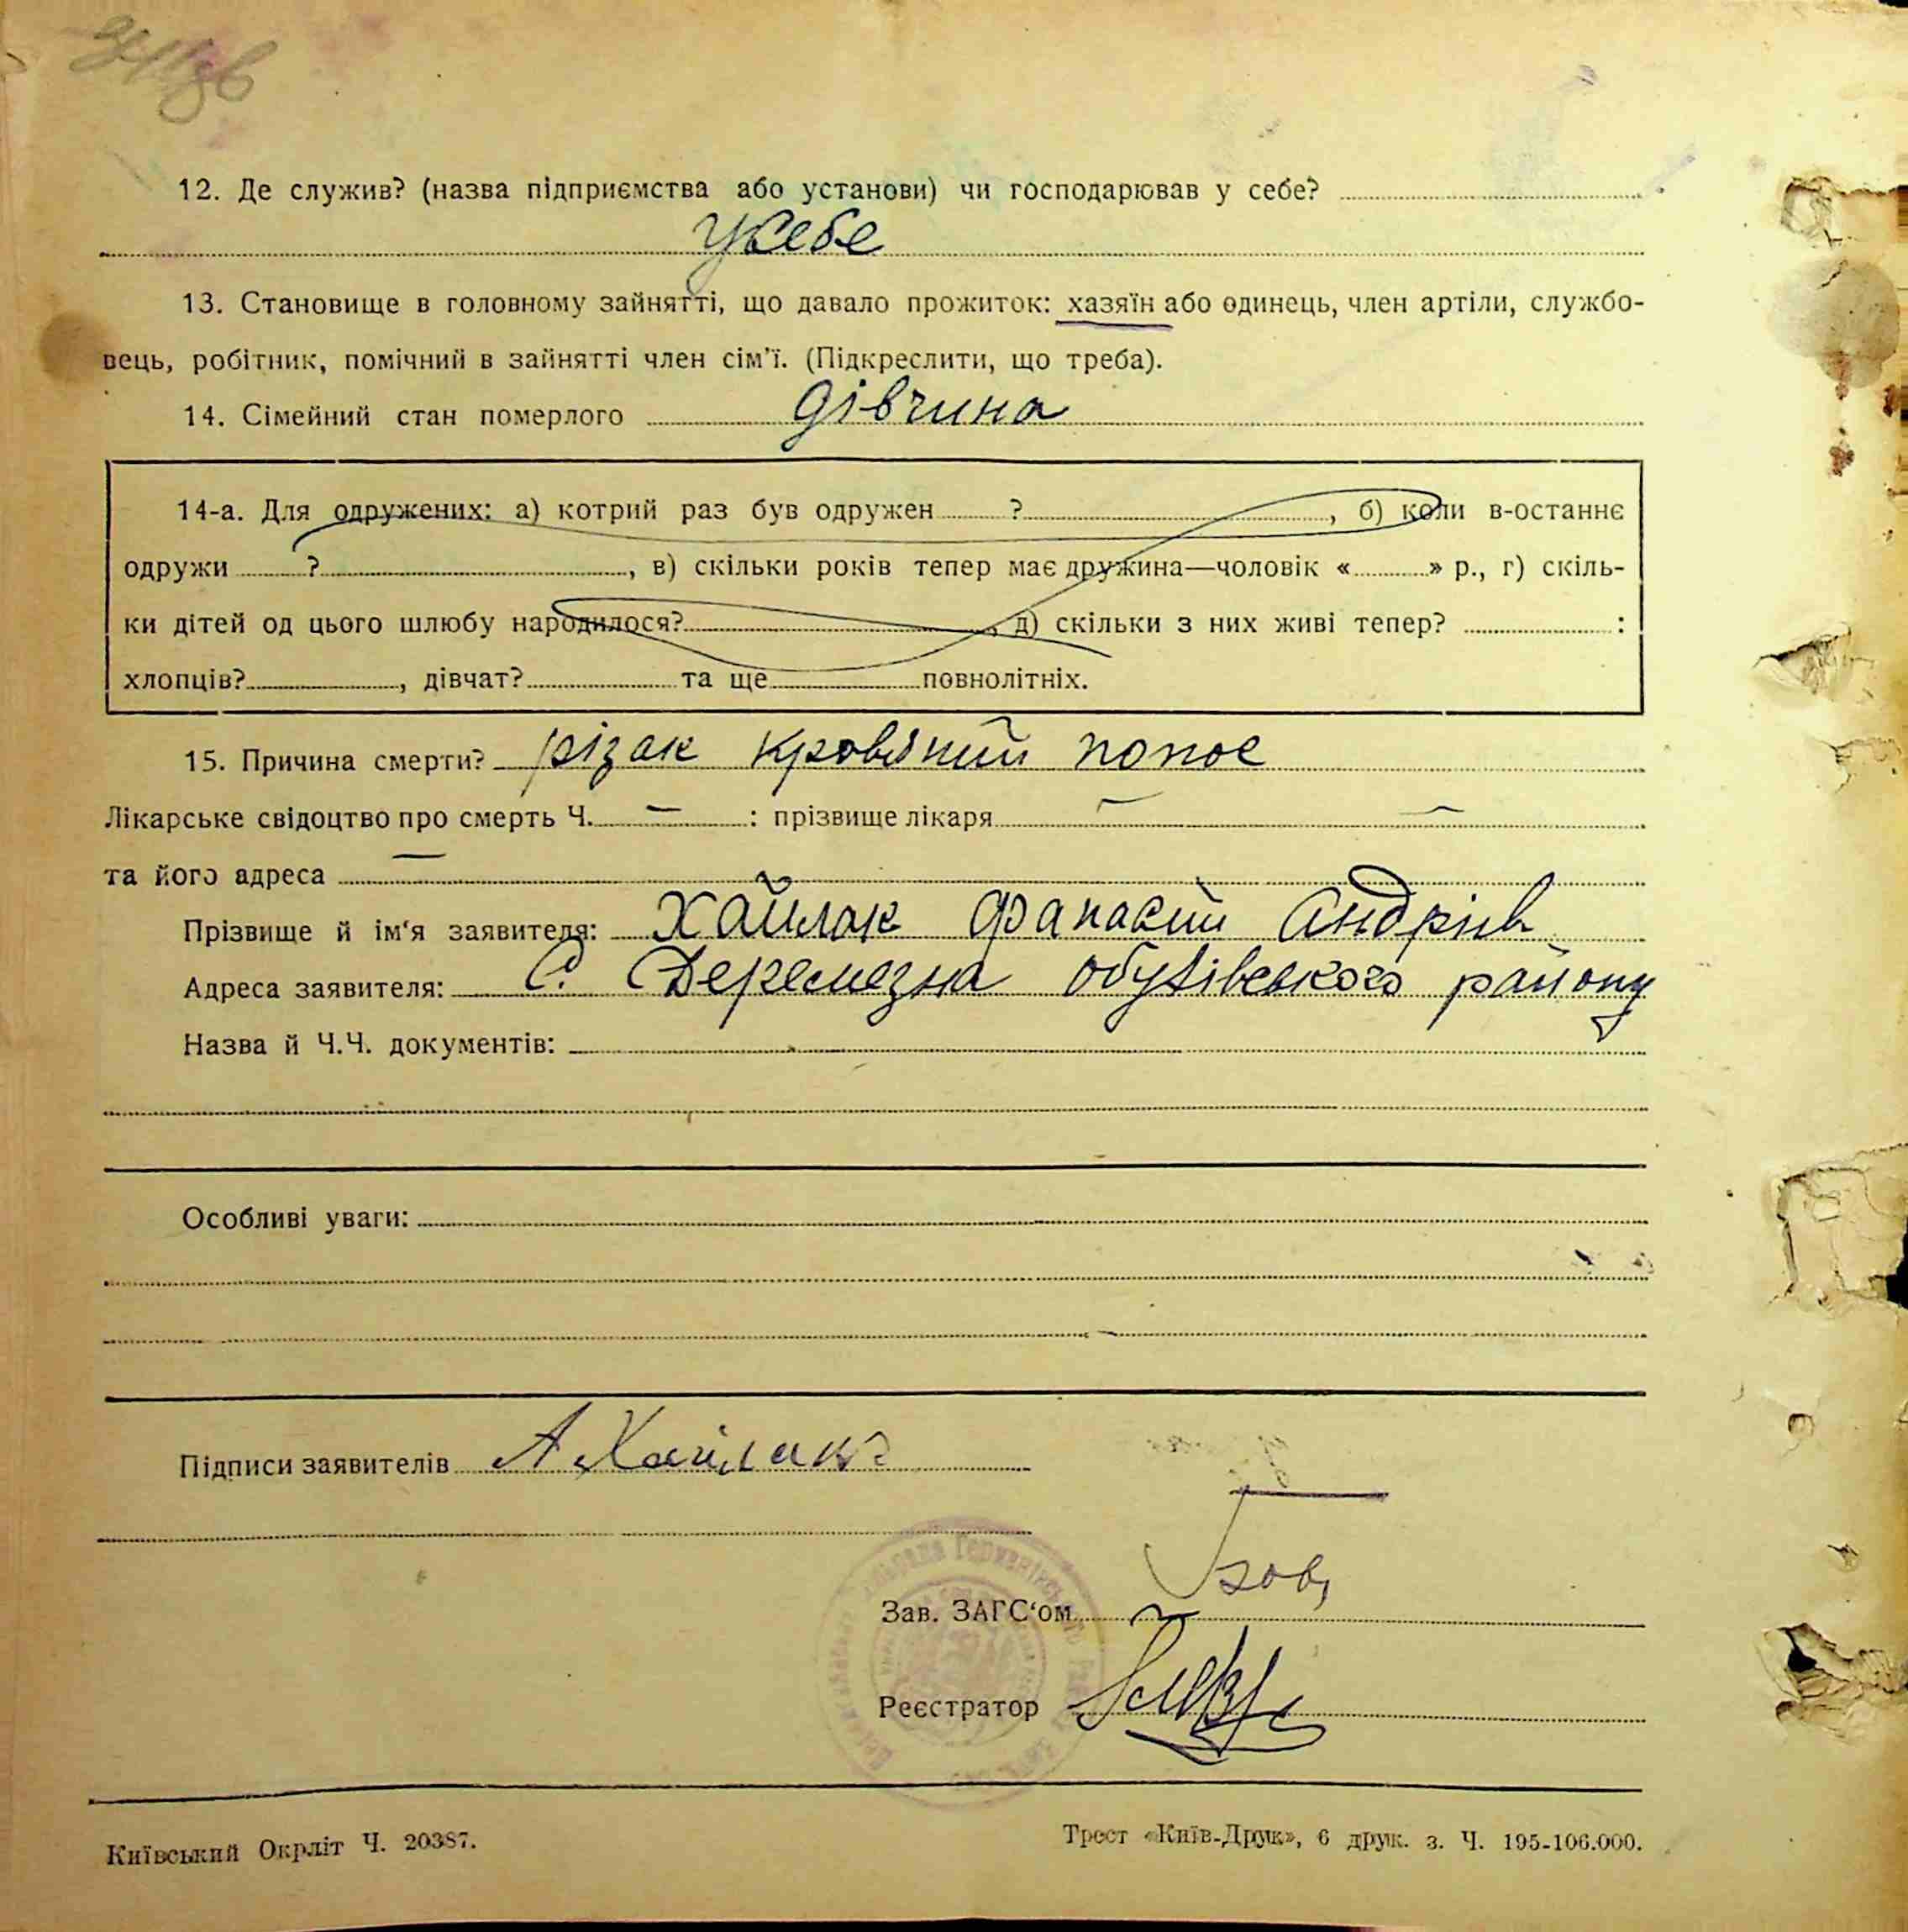 12. Де служив? (назва підприємства або установи) чи господарював у себе?
у себе
13. Становище в головному зайнятті, що давало прожиток: хазяїн або одинець, член артіли, службо-
вець, робітник, помічний в зайнятті член сім'ї. (Підкреслити, що треба).
14. Сімейний стан померлого дівчина
14-а. Для одружених: а) котрий раз був одружен ? , б) коли в-останнє
одружи ? , в) скільки років тепер має дружина—чоловік « » р., г) скіль-
ки дітей од цього шлюбу народилося? , д) скільки з них живі тепер? :
хлопців? , дівчат? та ще повнолітніх.
15. Причина смерти? різак кровяний понос
Лікарське свідоцтво про смерть Ч. — : прізвище лікаря — —
та його адреса —
Прізвище й ім'я заявителя: Хайлак Фанасій Андріїв
Адреса заявителя: С. Деремезна обухівського району
Назва й Ч.Ч. документів:
Особливі уваги:
Підписи заявителів А Хайлак
Зав. ЗАГС'ом
Реєстратор
Київський Окрліт Ч. 20387.
Трест «Київ-Друк», 6 друк. з. Ч. 195-106.000.